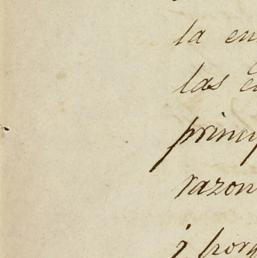 la en
las c
princip
razon
y porq